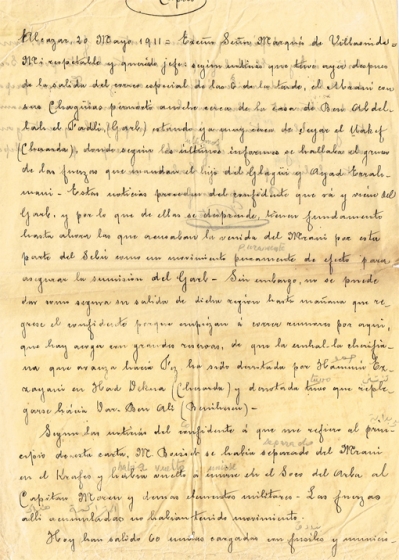 Copia
Alcazar, 20 Mayo 1911 = Excmo Señor Marqués de Villasinda =
Mi respetable y querido jefe: según indiqué que tuve ayer despues
de la salida del correo especial de las 6 de la tarde, el Mrani con
sus Chagüias pernoctó anoche cerca de la casa de Ben Abdel-
lah el Fadli (Garb) estando ya muy cerca de llegar el
(Cherarda), donde segun los últimos informes se hallaba el grueso
de las fuerzas que mandan el hijo del Glagüi y Ayad
Estas noticias proceden del confidente que vá y viene del
Garb, y por lo que de ellas se desprende, tienen fundamento
hasta ahora las que acusaban la venida del Mrani por esta
parte del Sebú como un movimiento puramente de efecto para
puramente
asegurar la sumisión del Garb - Sin embargo, no se puede
dar como segura su salida de dicha región hasta mañana que re-
grese el confidente porque empiezan á correr rumores por aquí,
que hay acoger con grandes reservas, de que la mehal-la cherifia-
na que avanza hacia Fez ha sido derrotada por Hammú
en Had (Cherarda) y derrotada tuvo que reple-
garse hácia Dar. Ben Ali
Segun las noticias del confidente á que me refiero al prin-
cipio de esta carta, M. se habia separado del Mrani
separado
en el Krafes y habia vuelto á unirse en el Soco del Arba al
vuelto
Capitan Moreau y demas elementos militares - Las fuerzas
alli acumuladas no habian tenido movimiento.
Hoy han salido 60 mulas cargadas con fusiles y municio-